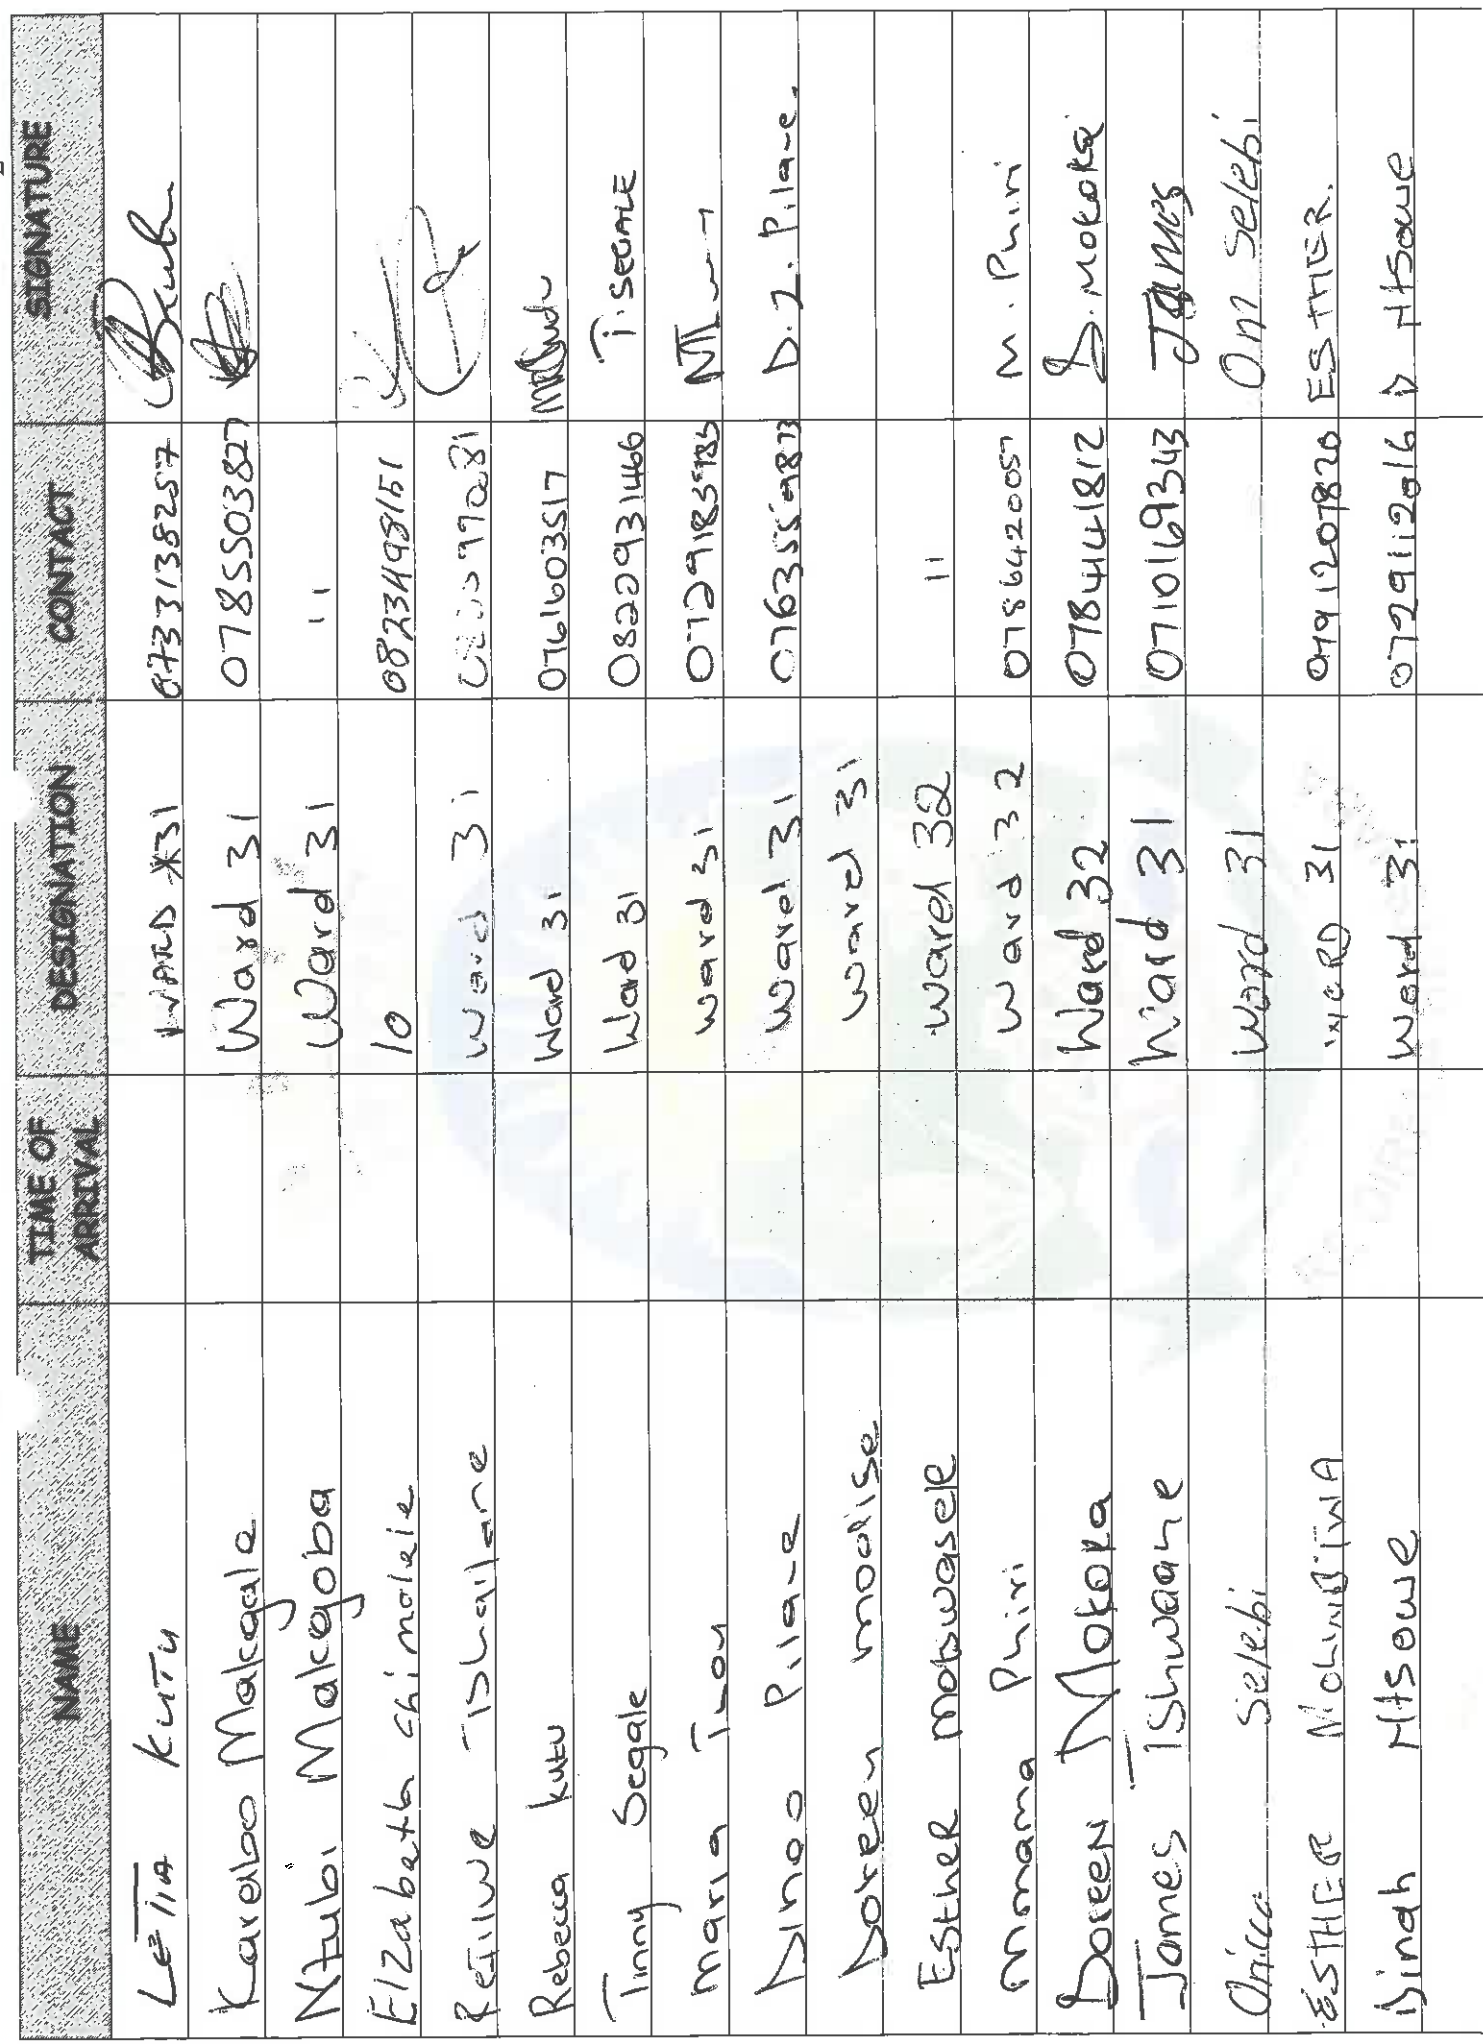 NAME TIME OF ARRIVAL DESIGNATION CONTACT SIGNATURE
LETTIA KUTU WARD 31 0733138257
Karabo Makgale Ward 31 0785503827
Ntubi Makgoba Ward 31 "
Elzabeth chimolele 10 0823498151
Refilwe Tshailane Ward 31
Rebecca Kutu Ward 31 0761603517
Tinny Segale Ward 31 0822931466 T. SEGALE
Maria Ward 31
Dinoo Pilane Ward 31 D.2. Pilane.
Doreen modise Ward 31
EstheR motswaselR Ward 32 "
mmama Phiri Ward 32 0786420057 M. Phiri
DoreeN Mokoka Ward 32 0784441812 D. Mokoka
James Tshwaane Ward 31 0710169343 James
Onica Selebi Ward 31 Om Selebi
ESTHER WARD 31 ESTHER.
Dinah Ntsowe Ward 31 0729112016 D Ntsowe